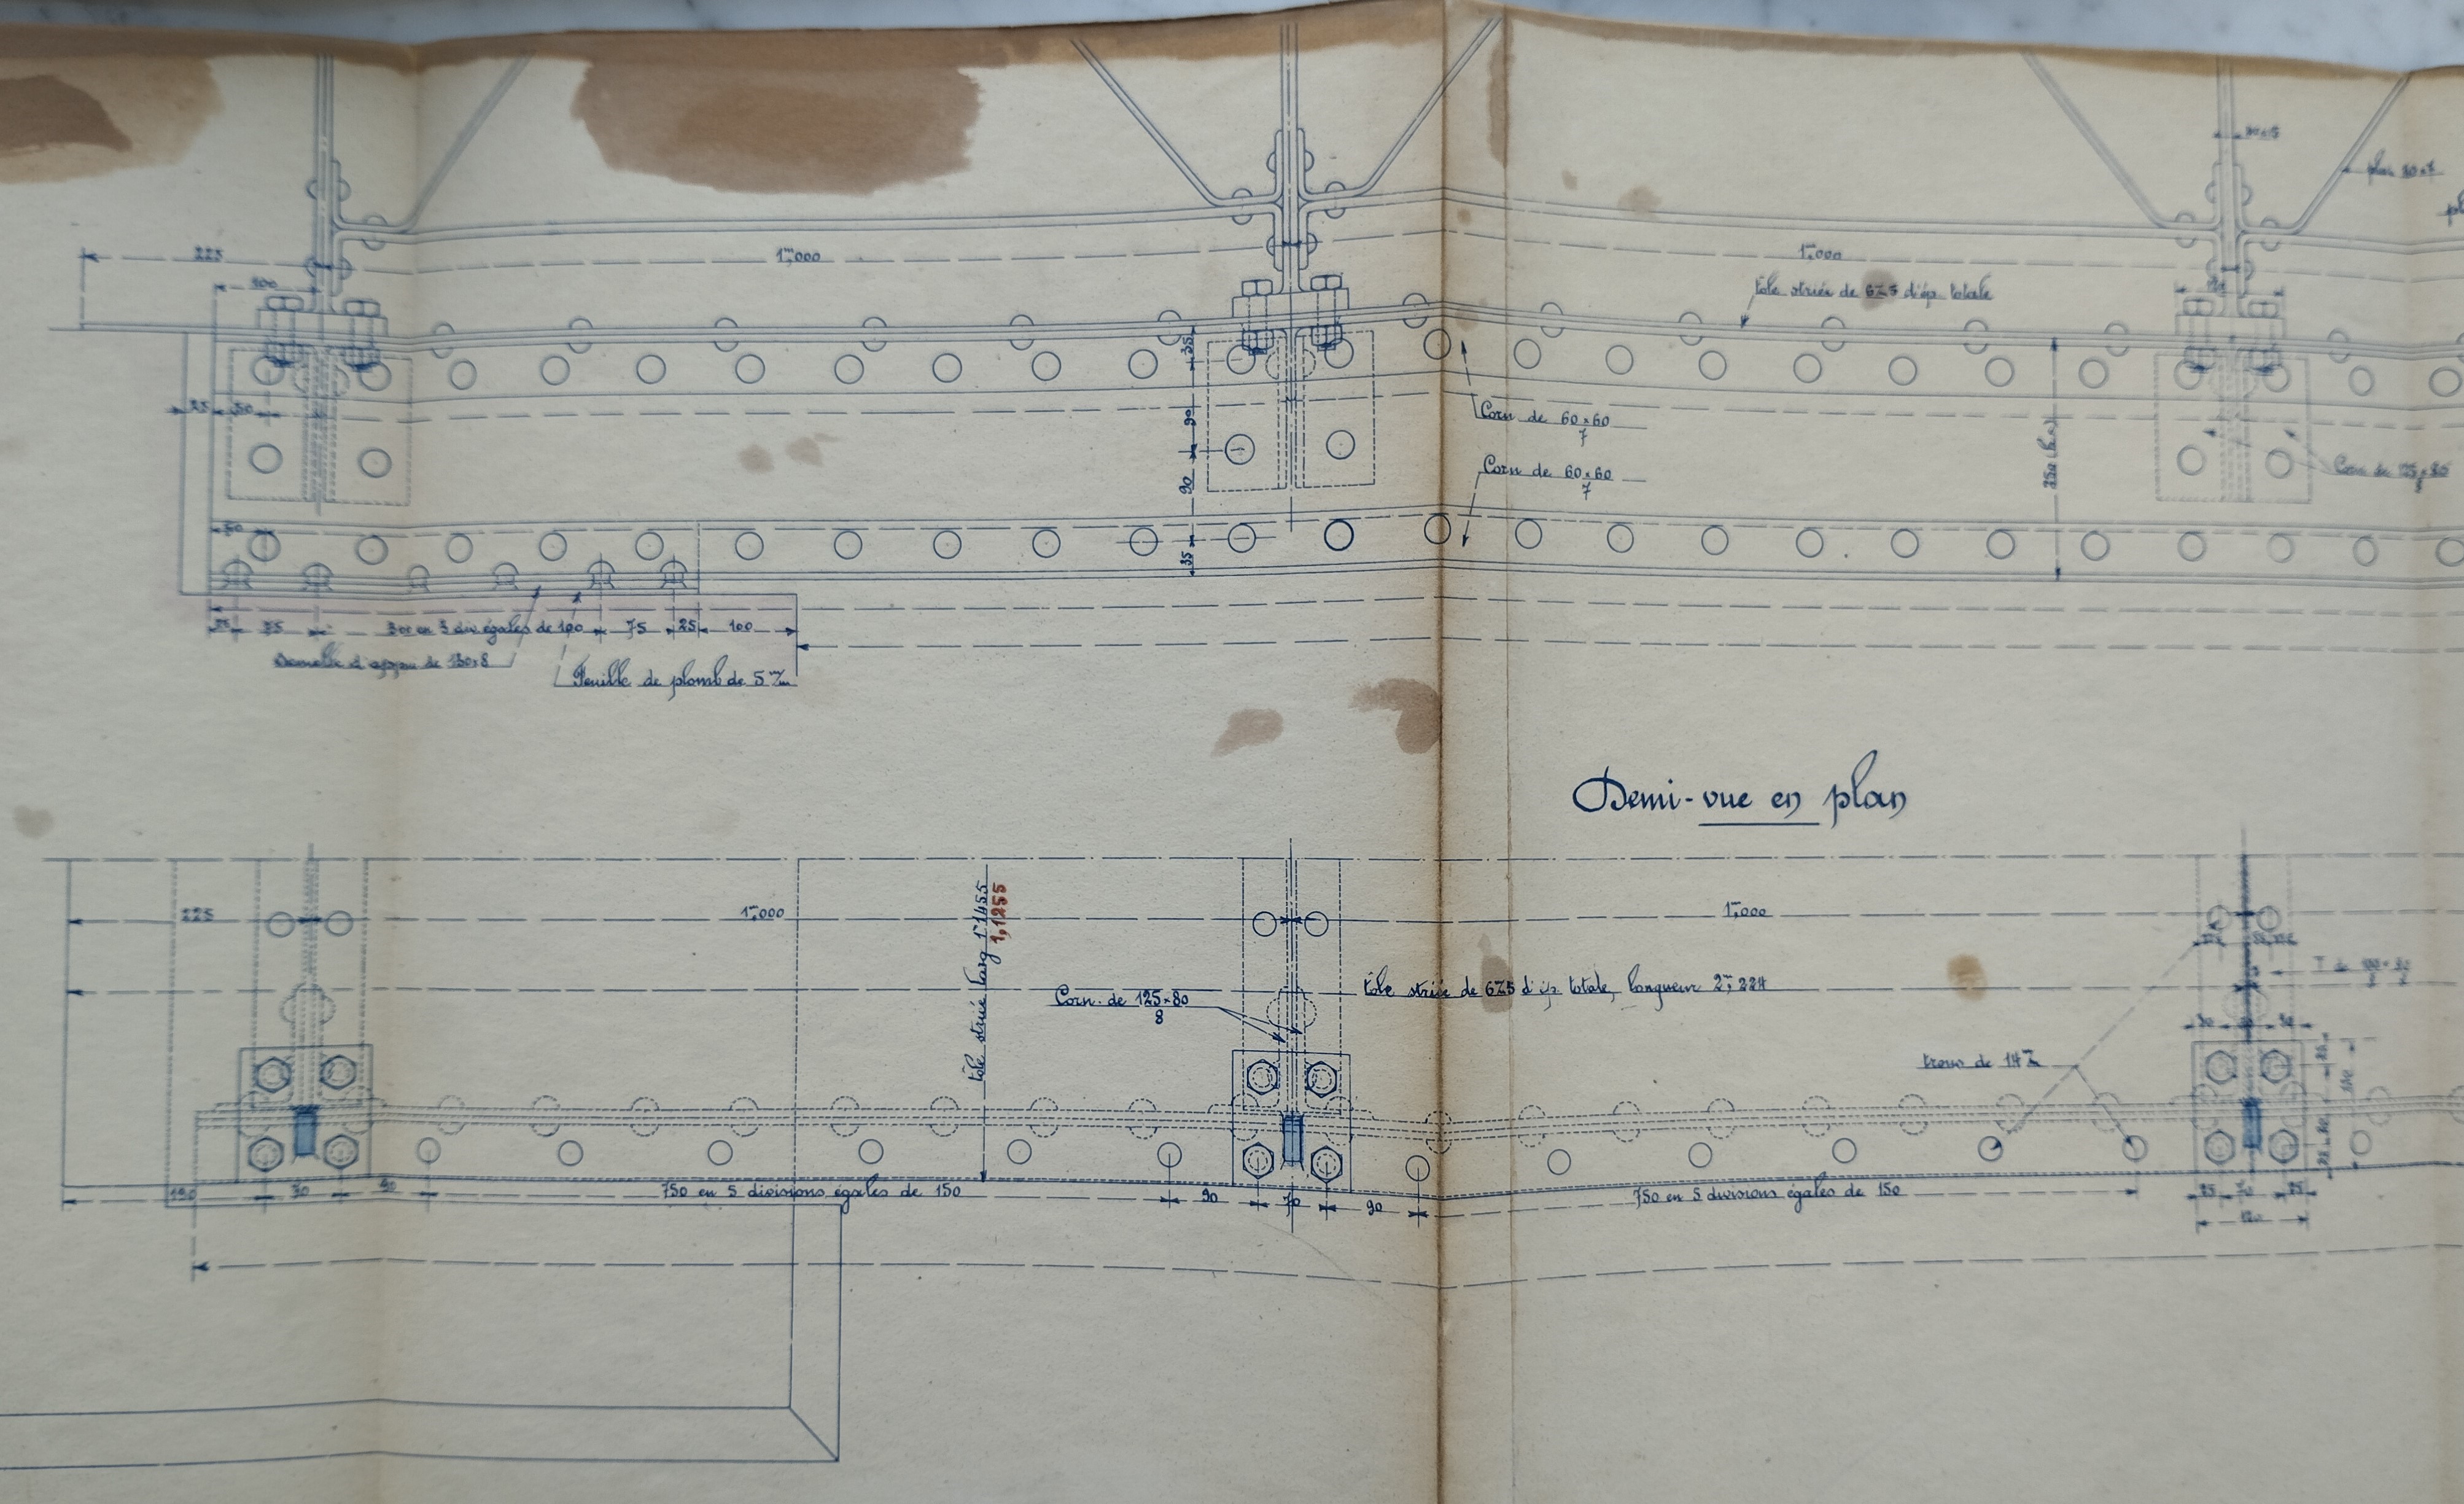 80×5
plat 80×7
225
1ᵐ,000
1ᵐ,000
100
tôle striée de 6⁄5 d'ép. totale
35
25
50
90
Corn de 60×60
7
Corn de 60×60
7
90
250
Corn de 125×80
50
35
75
300 en 3 div. égales de 100
75
25
100
Semelle d'appui de 130×8
Feuille de plomb de 5 m/m
Demi-vue en plan
225
1ᵐ,000
1ᵐ,000
tôle striée larg 1ᵐ1455
1,1255
Corn. de 125×80
8
tôle striée de 6⁄5 d'ép. totale, longueur 2ᵐ,224
trous de 14 m/m
70
90
750 en 5 divisions égales de 150
90
70
90
750 en 5 divisions égales de 150
25
70
25
120